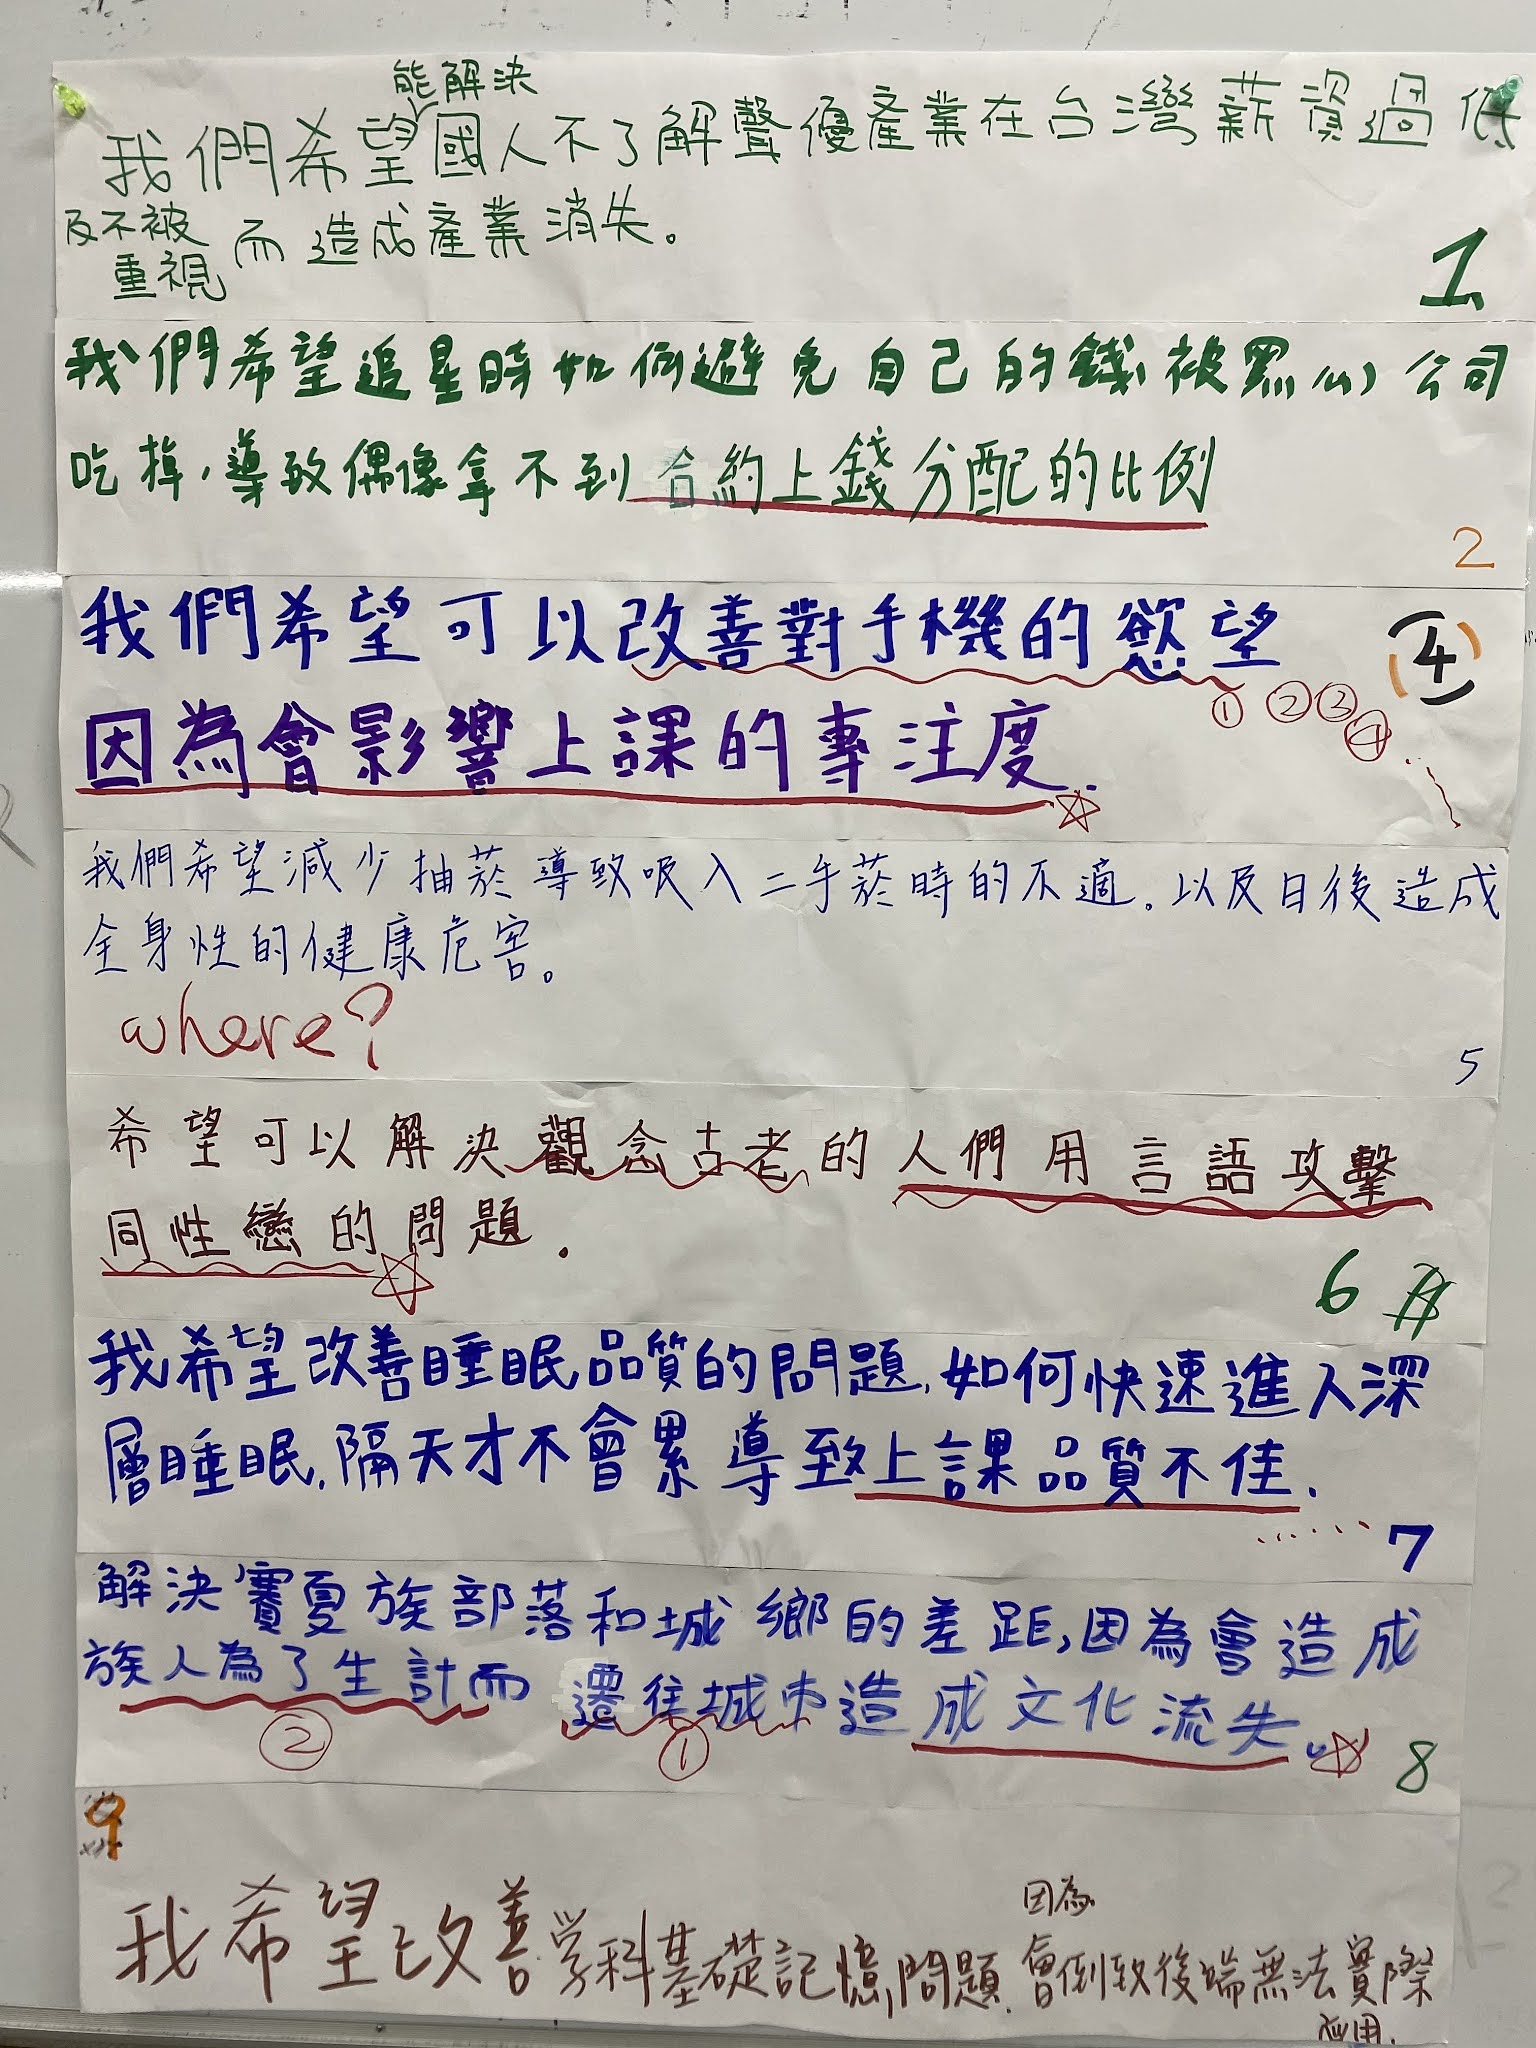 能解決
我們希望國人不了解聲優產業在台灣薪資過低
及不被重視而造成產業消失。
1
我們希望追星時如何避免自己的錢被黑心公司
吃掉，導致偶像拿不到合約上錢分配的比例
2
我們希望可以改善對手機的慾望
4
① ② ③ ④
因為會影響上課的專注度.
我們希望減少抽菸導致吸入二手菸時的不適。以及日後造成
全身性的健康危害。
where?
5
希望可以解決觀念古老的人們用言語攻擊
同性戀的問題.
6
我希望改善睡眠品質的問題,如何快速進入深
層睡眠,隔天才不會累導致上課品質不佳.
7
解決賽夏族部落和城鄉的差距,因為會造成
族人為了生計而遷往城市造成文化流失.
② ①
8
9
因為
我希望改善學科基礎記憶問題.會倒致後端無法實際
應用.